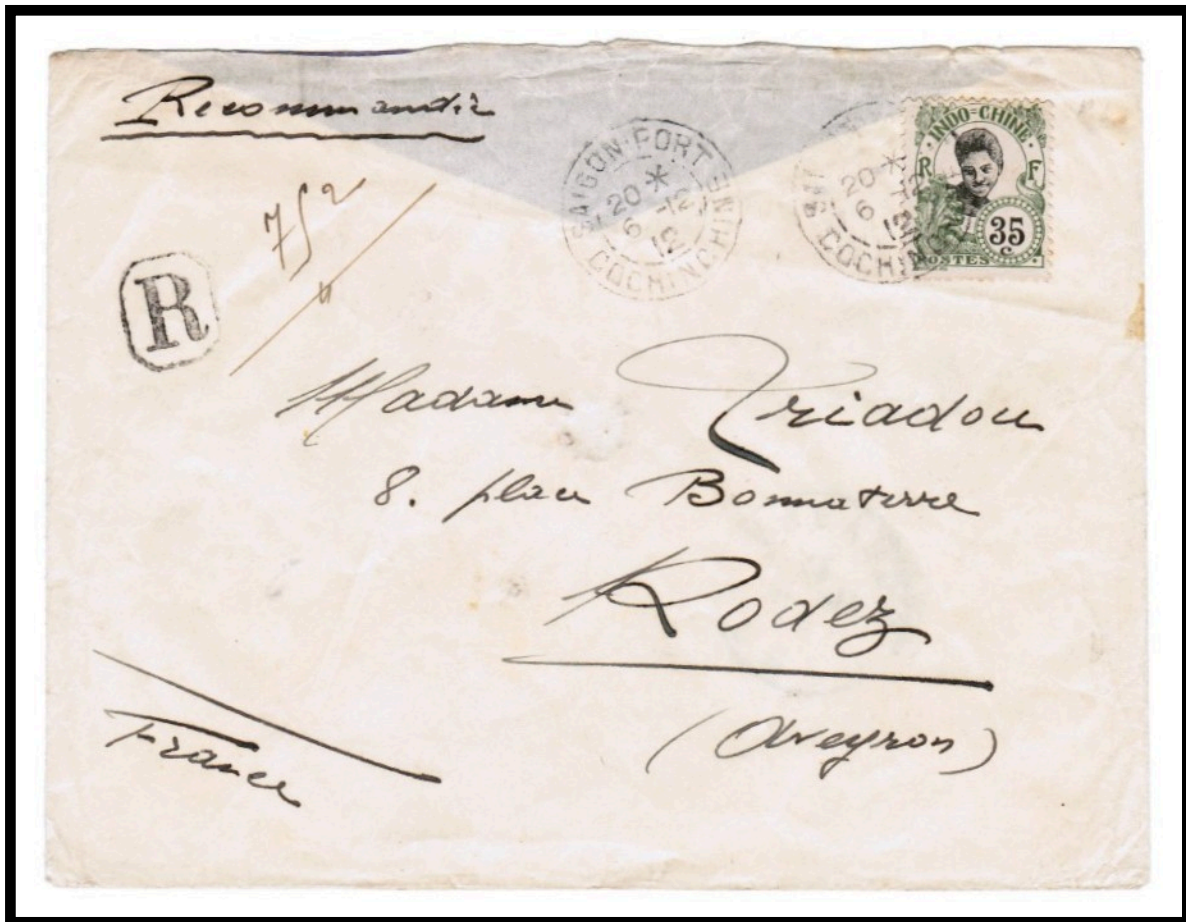 Recommandée
SAIGON-PORT
20 *
6 -12
12
COCHINCHINE
20 *
6 -12
12
COCHIN
INDO=CHINE
R F
35
c
POSTES
752
R
Madame Triadou
8. place Bonnaterre
Rodez
(Aveyron)
France